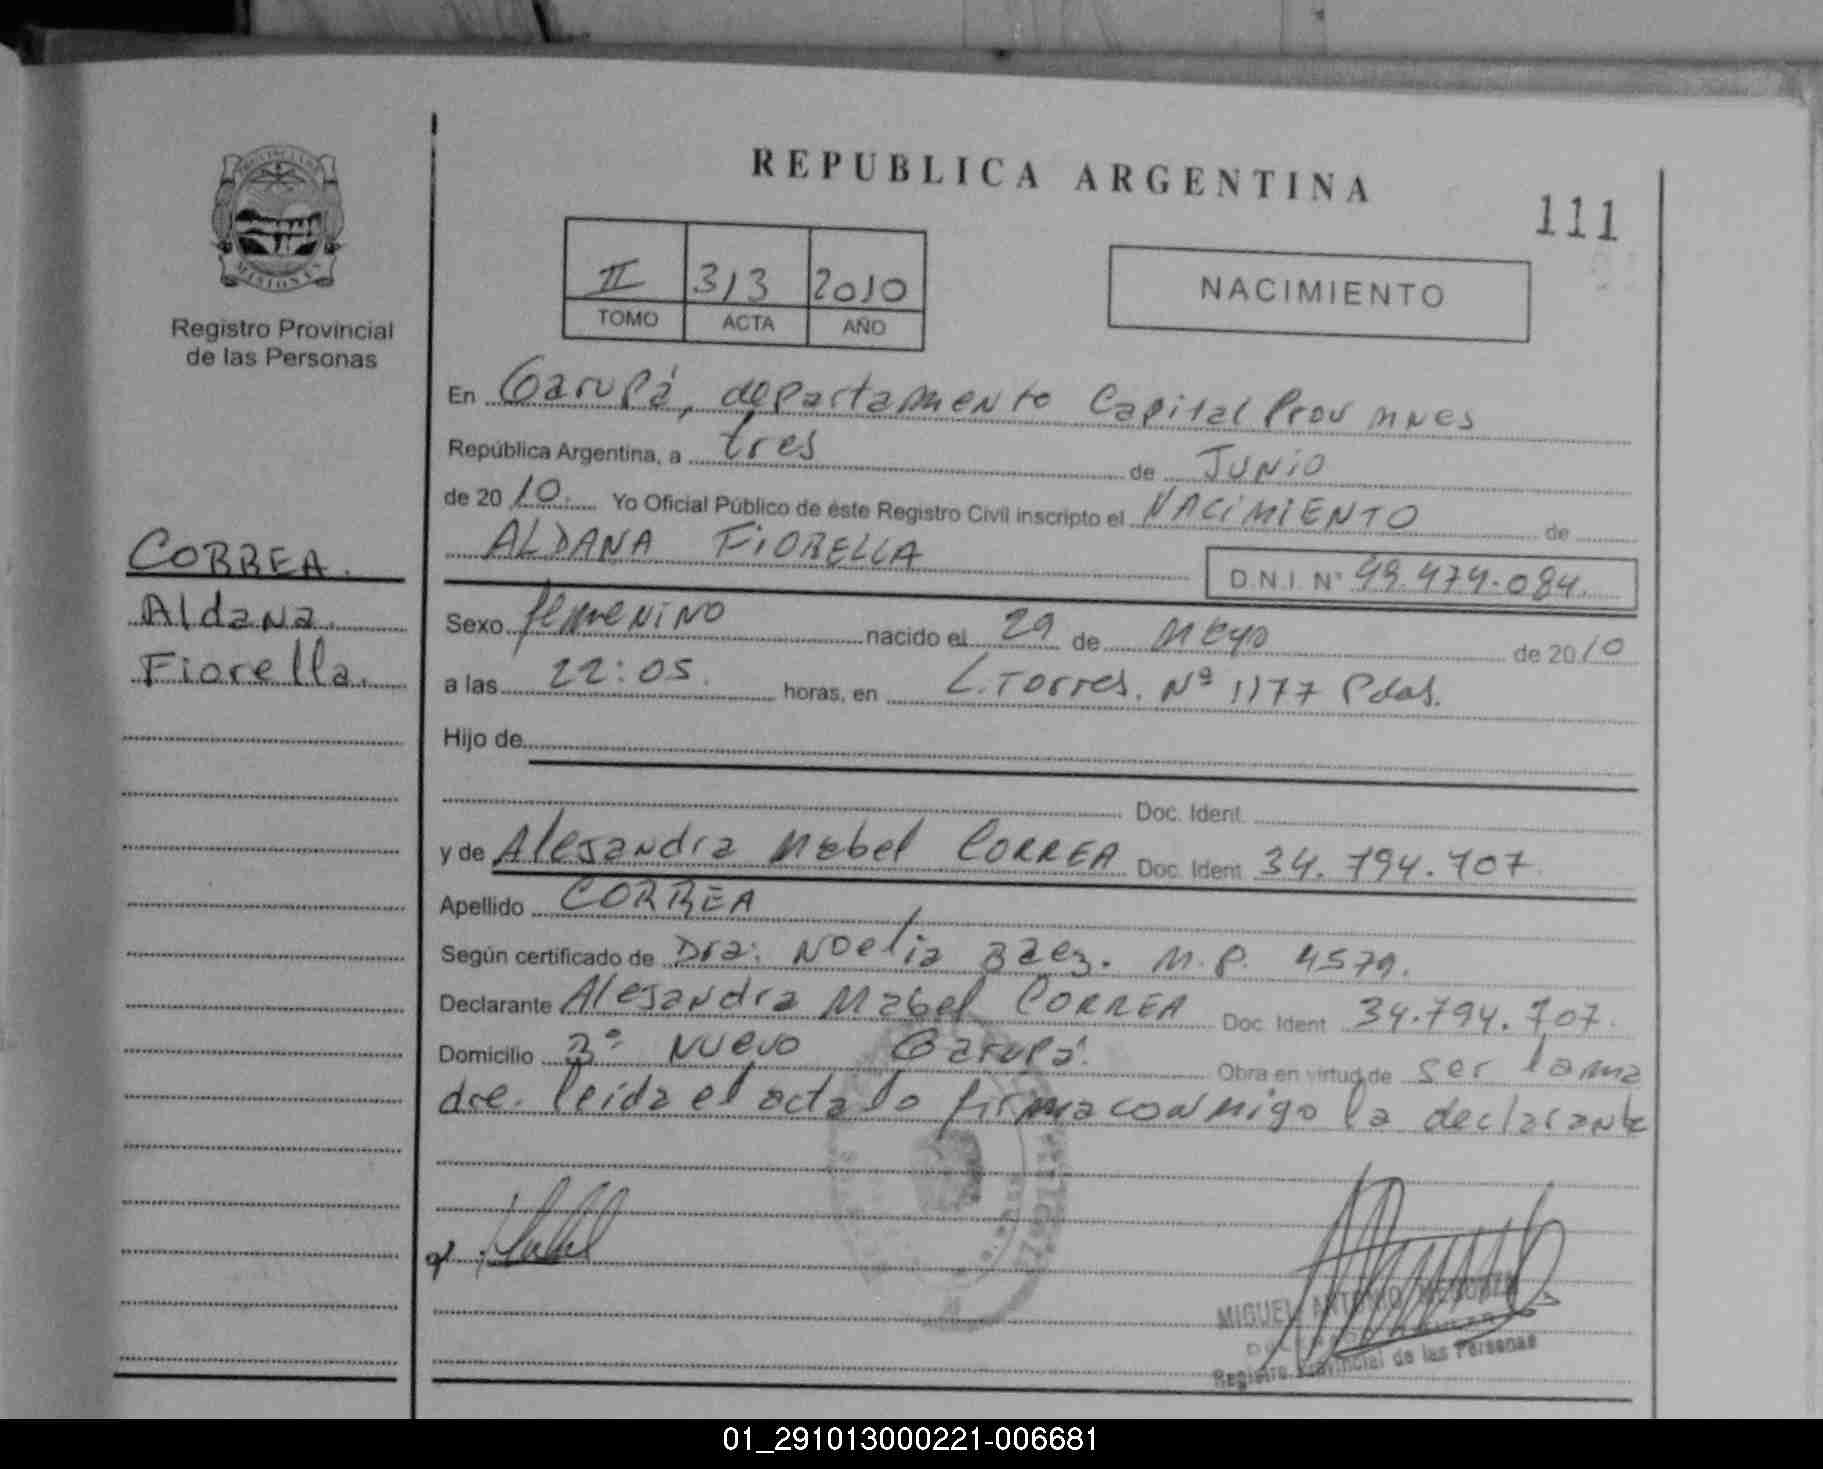 REPUBLICA ARGENTINA
111
PROVINCIA DE
MISIONES
Registro Provincial
de las Personas
II 313 2010
TOMO ACTA AÑO
NACIMIENTO
En Garupá, departamento Capital Prov mnes
República Argentina, a tres de Junio
de 2010. Yo Oficial Público de éste Registro Civil inscripto el NACIMIENTO de
ALDANA FIORELLA
D.N.I. N° 49.474.084.
CORREA.
Aldana
Fiorella.
Sexo femenino nacido el 29 de Mayo de 2010
a las 22:05. horas, en L. Torres. Nº 1177 Pdas.
Hijo de
Doc. Ident.
y de Alejandra Mabel CORREA Doc. Ident. 34.794.707.
Apellido CORREA
Según certificado de Dra: Noelia Baez. M.P. 4579.
Declarante Alejandra Mabel CORREA Doc. Ident. 34.794.707.
Domicilio Bº Nuevo Garupá. Obra en virtud de ser la ma
dre. leida el acta la firma conmigo la declarante
MIGUEL ANTONIO
Registro Provincial de las Personas
01_291013000221-006681